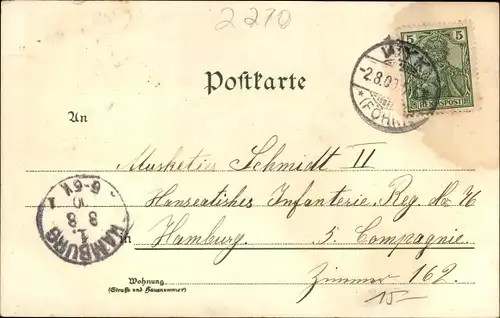 2270
5 5
REICHSPOST
WYK
-2.8.00
* (FÖHR)
Postkarte
An
Musketier Schmidt II
Hanseatisches Infanterie Reg. No 76
in Hamburg 5. Compagnie.
Zimmer 162.
HAMBURG
1.
3 8
00
6-6½V.
1
Wohnung
(Straße und Hausnummer)
15-